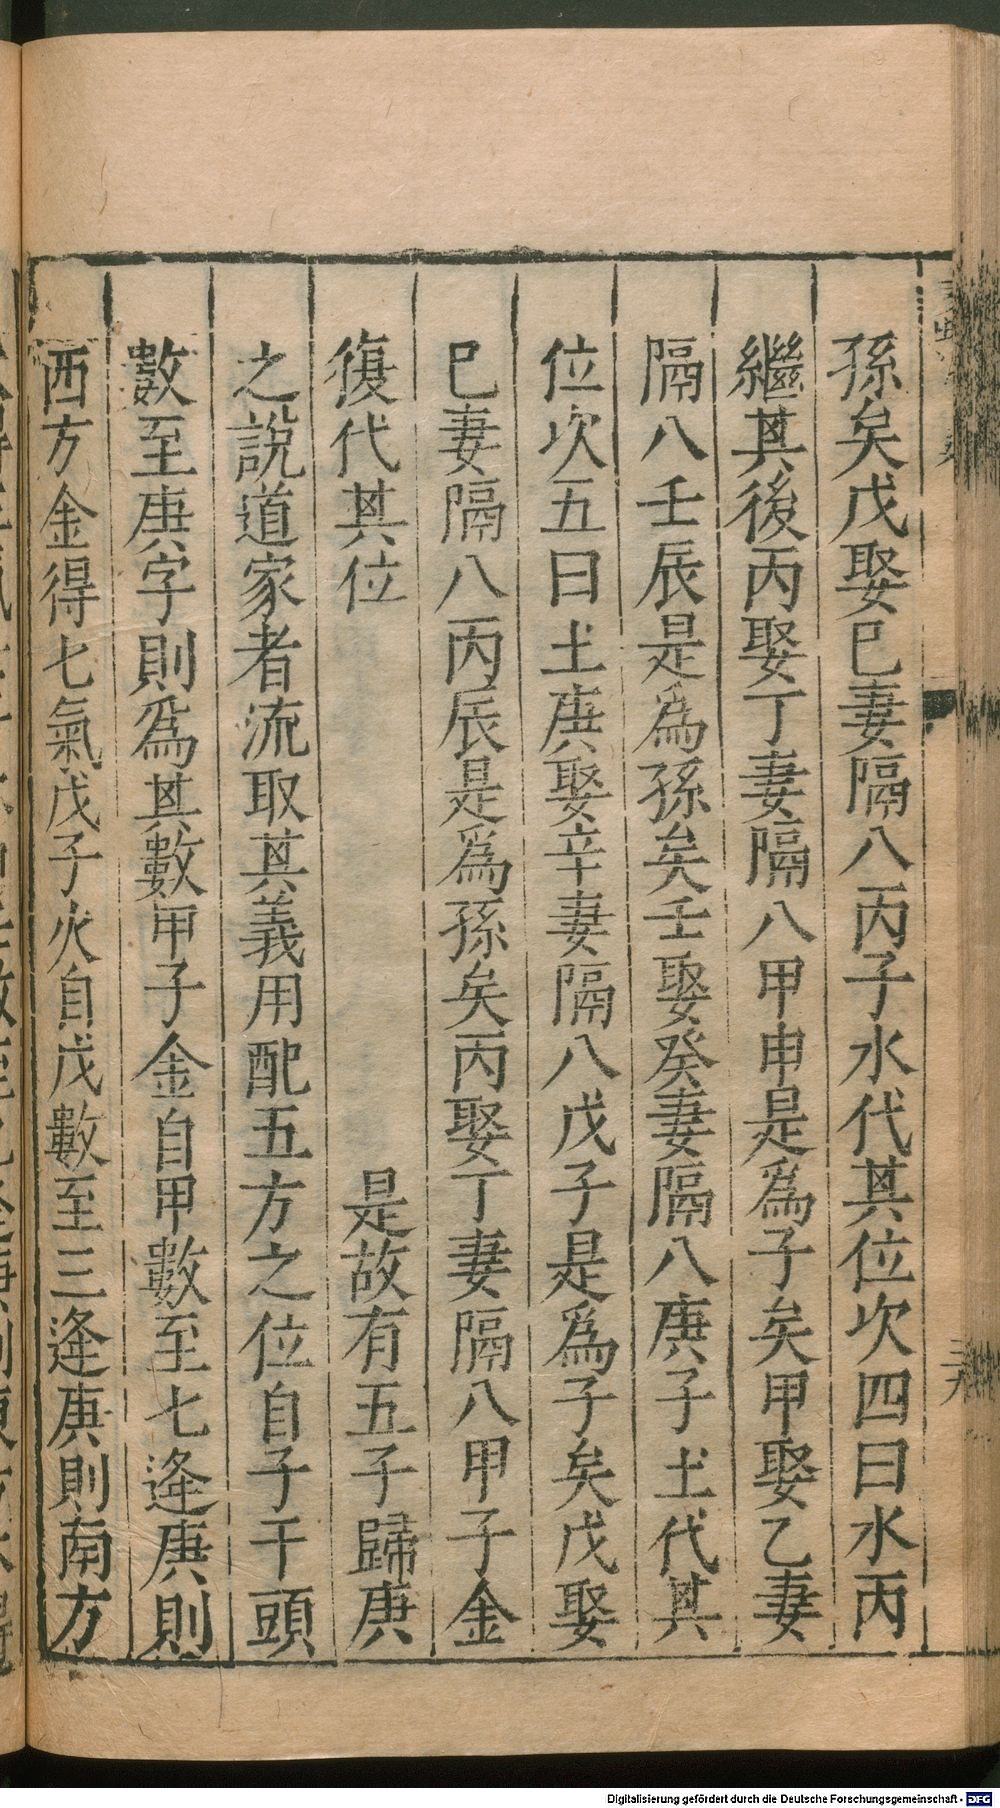 孫矣戊娶巳妻隔八丙子水代其位次四曰水丙
繼其後丙娶丁妻隔八甲申是爲子矣甲娶乙妻
隔八壬辰是爲孫矣壬娶癸妻隔八庚子土代其
位次五曰土庚娶辛妻隔八戊子是爲子矣戊娶
巳妻隔八丙辰是爲孫矣丙娶丁妻隔八甲子金
復代其位 是故有五子歸庚
之說道家者流取其義用配五方之位自子干頭
數至庚字則爲其數甲子金自甲數至七逢庚則
西方金得七氣戊子火自戊數至三逢庚則南方
Digitalisierung gefördert durch die Deutsche Forschungsgemeinschaft - DFG